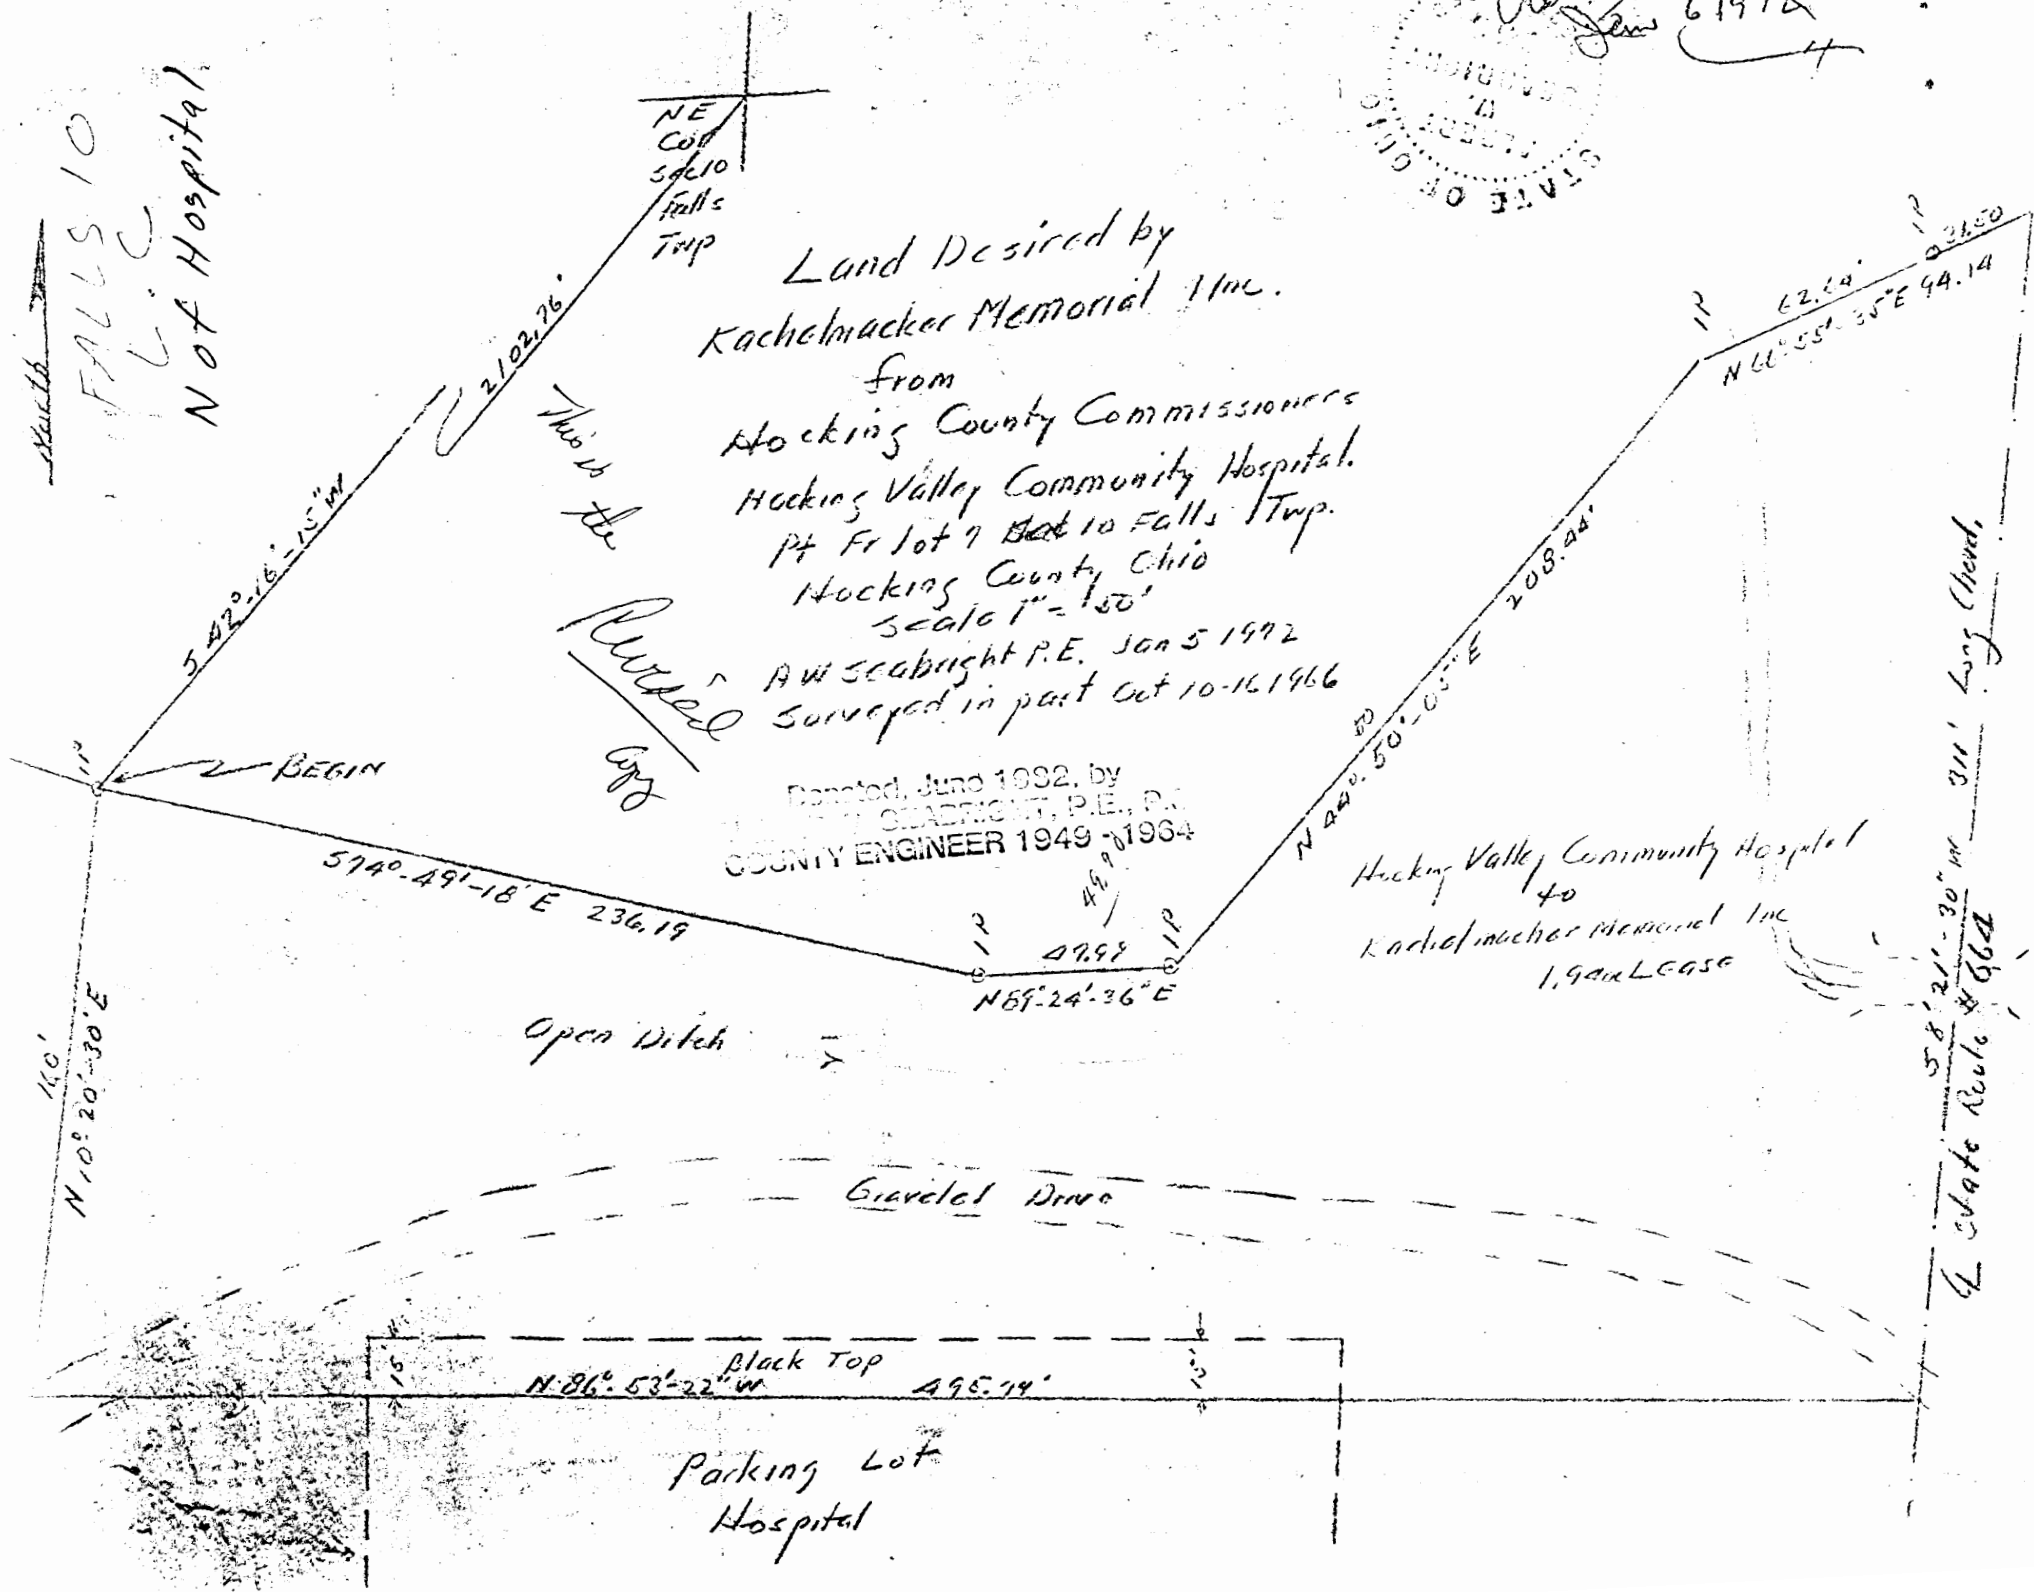 Jan 6 1972
North
FALLS 10
N of Hospital
NE
Cor
Sec 10
Falls
Twp
2102.76'
S 42°-16'-15" W
This is the
Revised
Copy
Land Desired by
Kachelmacker Memorial Inc.
from
Hocking County Commissioners
Hocking Valley Community Hospital.
Pt Fr lot 7 Sec 10 Falls Twp.
Hocking County Ohio
Scale 1" = 50'
A W Seabright P.E. Jan 5 1972
Surveyed in part Oct 10-16 1966
Donated, June 1982, by
SEABRIGHT, P.E., P.S.
COUNTY ENGINEER 1949 - 1964
STATE OF OHIO
IP
62.64'
IP
31.50
N 66°-55'-35" E 94.14
208.44'
N 44°-50'-05" E
IP
BEGIN
S74°-49'-18" E 236.19
IP
47.97
IP
N 89°-24'-36" E
160'
N 10°-20'-30" E
Hocking Valley Community Hospital
to
Kachelmacher Memorial Inc
1.94 ac Lease
S 8° 21'-30" W 311' Long Chord.
CL State Route # 664
Open Ditch
Gravelel Drive
15'
Black Top
N 86°-53'-22" W 495.74'
Parking Lot
Hospital